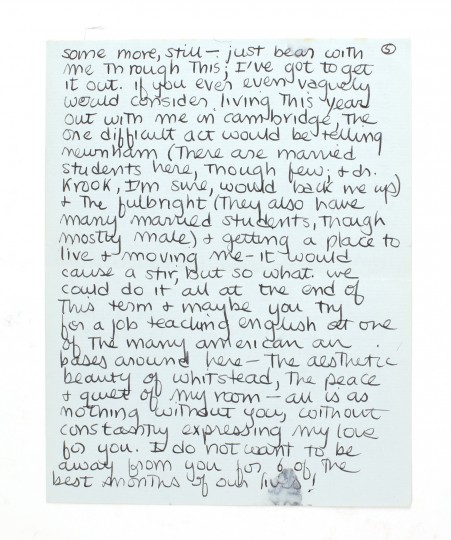 5
some more, still — just bear with
me through this; I've got to get
it out. if you ever even vaguely
would consider living this year
out with me in cambridge, the
one difficult act would be telling
newnham (there are married
students here, though few, & dr.
Krook, I'm sure, would back me up)
& the fulbright (they also have
many married students, though
mostly male) & getting a place to
live & moving me — it would
cause a stir, but so what. we
could do it all at the end of
this term & maybe you try
for a job teaching english at one
of the many american air
bases around here — the aesthetic
beauty of whitstead, the peace
& quiet of my room — all is as
nothing without you, without
constantly expressing my love
for you. I do not want to be
away from you for 6 of the
best months of our lives!